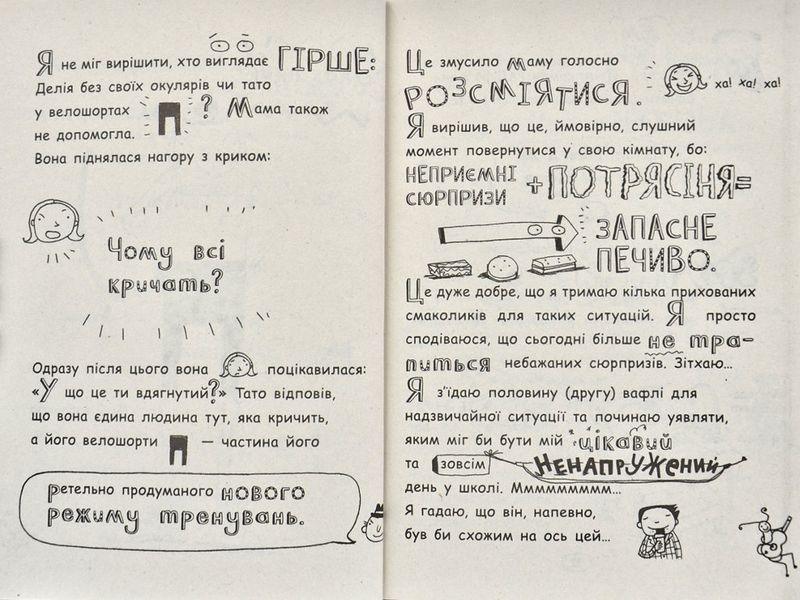 Я не міг вирішити, хто виглядає ГІРШЕ:
Делія без своїх окулярів чи тато
у велошортах ? Мама також
не допомогла.
Вона піднялася нагору з криком:
Чому всі
кричать?
Одразу після цього вона поцікавилася:
«У що це ти вдягнутий?» Тато відповів,
що вона єдина людина тут, яка кричить,
а його велошорти — частина його
ретельно продуманого нового
режиму тренувань.
Це змусило маму голосно
РОЗСМІЯТИСЯ. ха! ха! ха!
Я вирішив, що це, ймовірно, слушний
момент повернутися у свою кімнату, бо:
НЕПРИЄМНІ
СЮРПРИЗИ + ПОТРЯСІНЯ=
ЗАПАСНЕ
ПЕЧИВО.
Це дуже добре, що я тримаю кілька прихованих
смаколиків для таких ситуацій. Я просто
сподіваюся, що сьогодні більше не тра-
питься небажаних сюрпризів. Зітхаю...
Я з'їдаю половину (другу) вафлі для
надзвичайної ситуації та починаю уявляти,
яким міг би бути мій цікавий
та зовсім НЕНАПРУЖЕНИЙ
день у школі. Мммммммммм...
Я гадаю, що він, напевно,
був би схожим на ось цей...